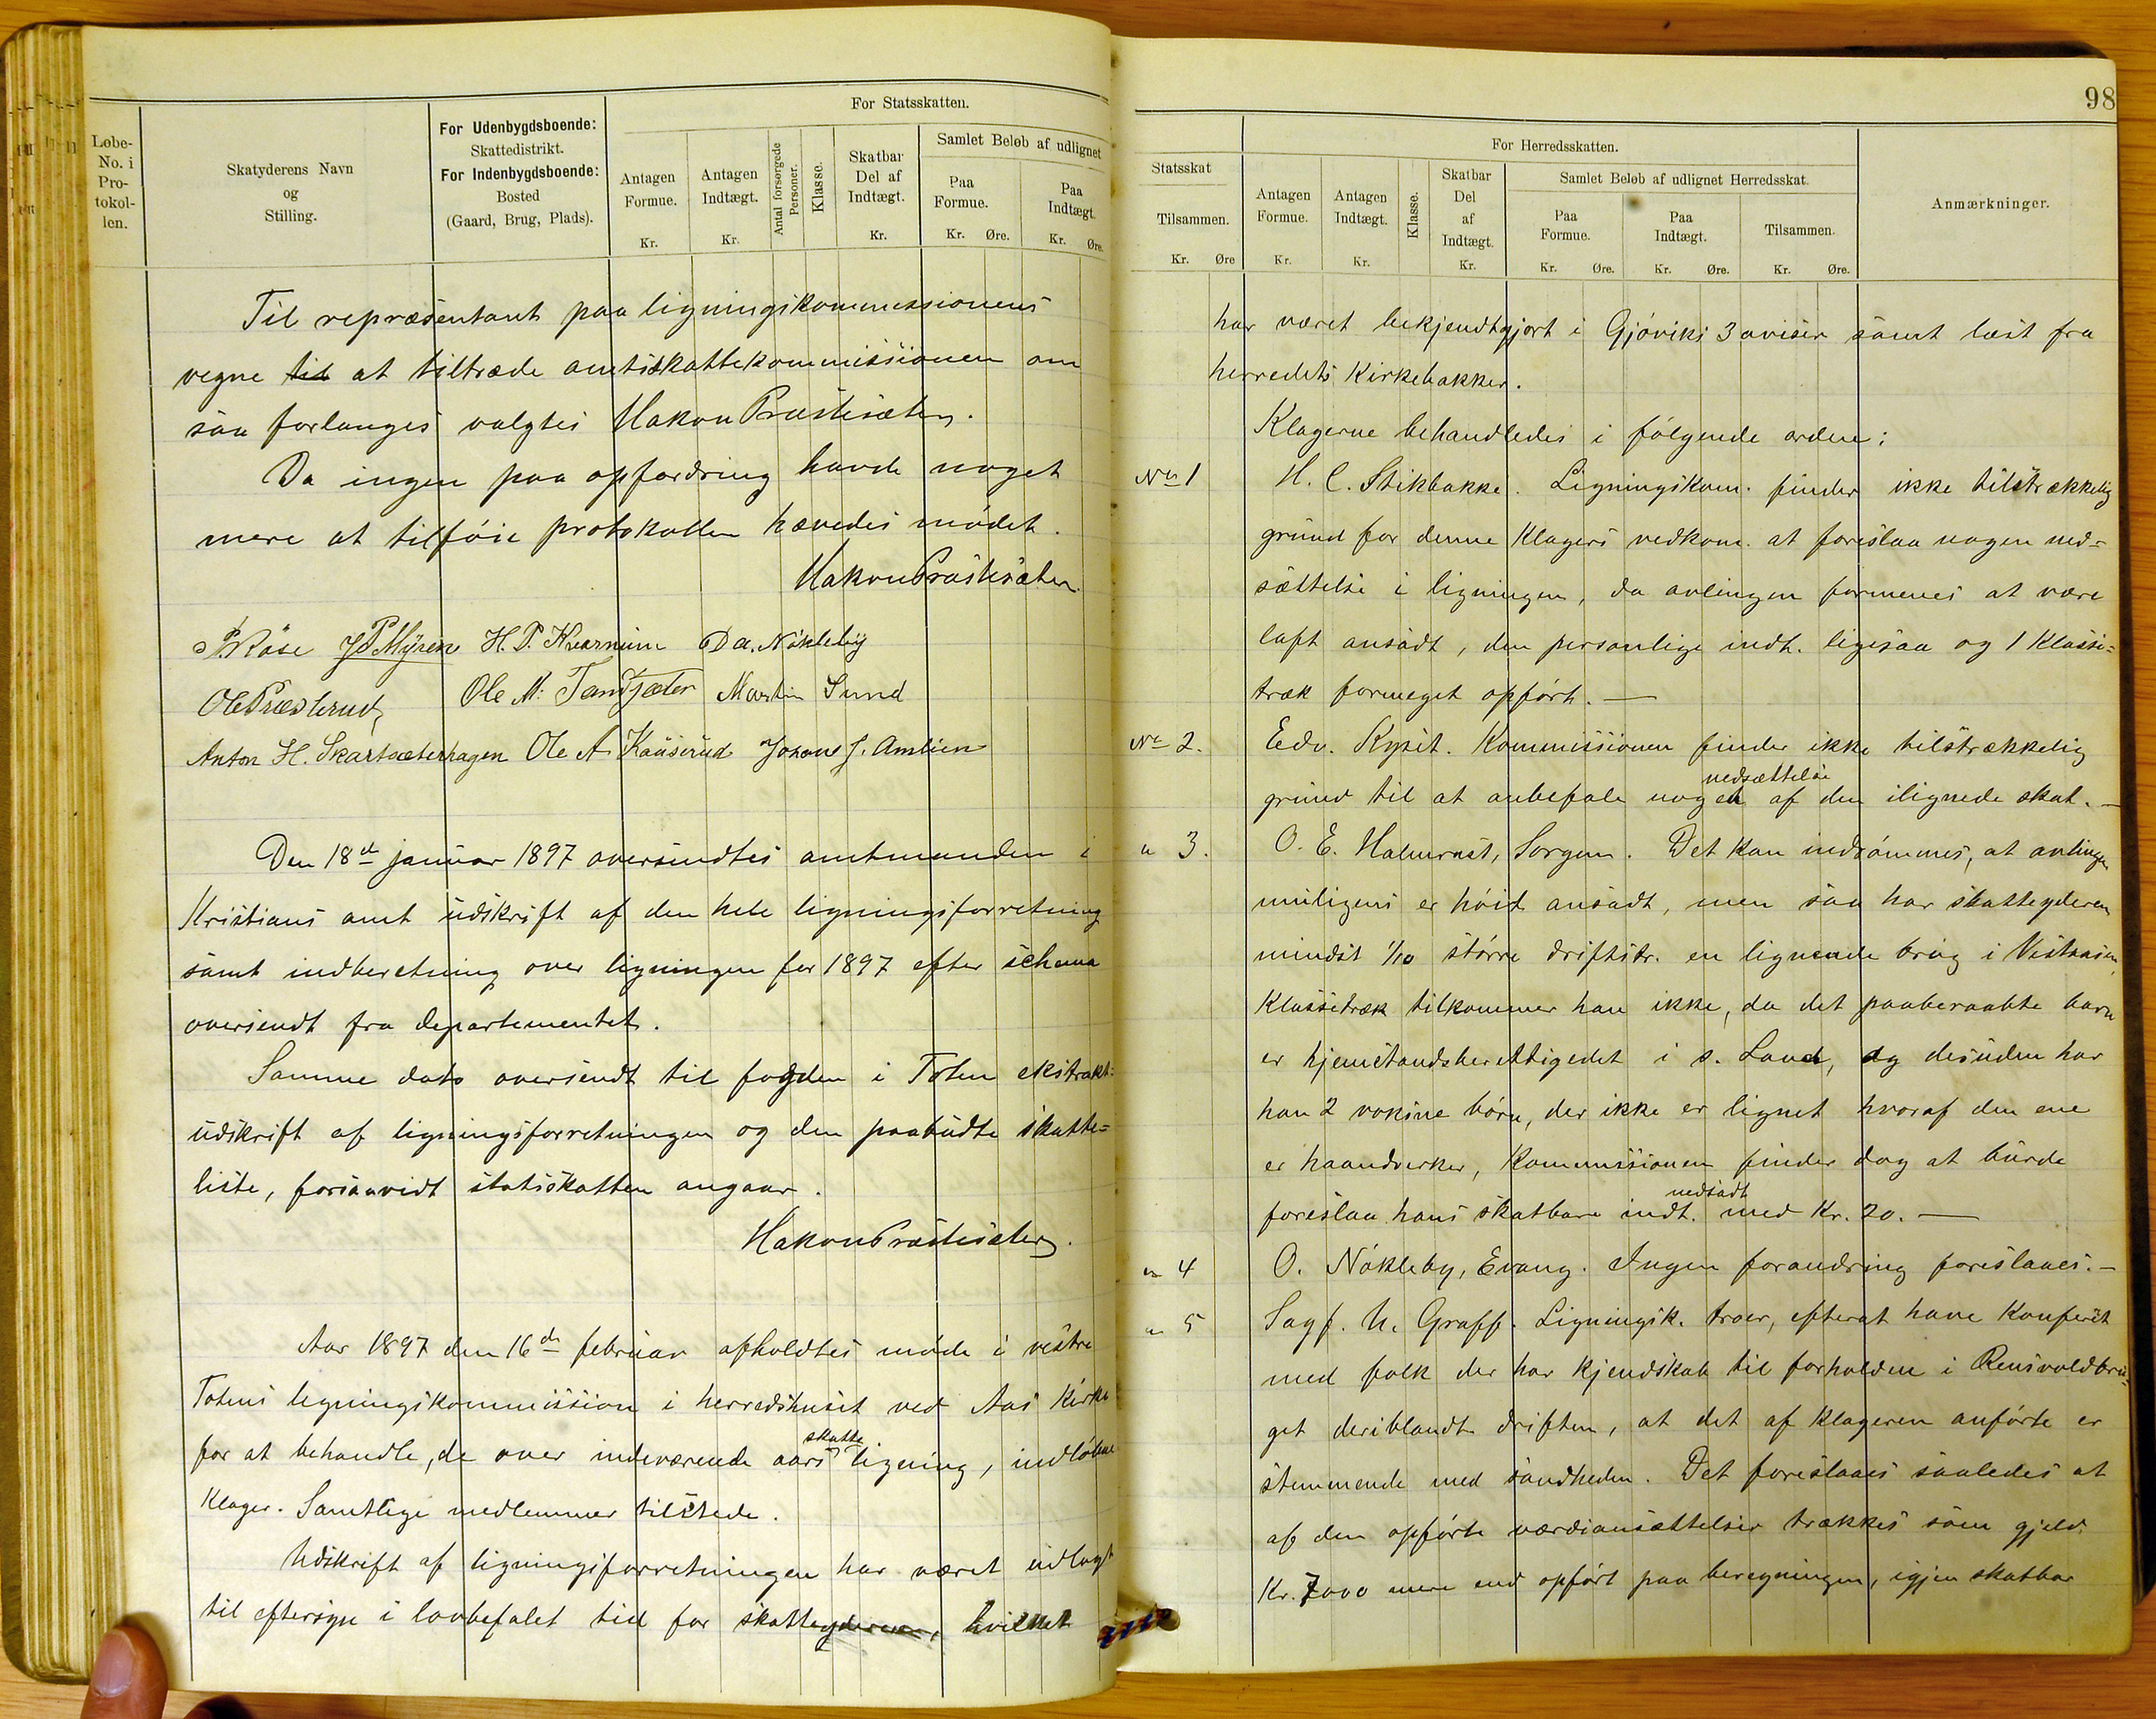 Løbe-
No. i
Pro-
tokol-
len.
Skatyderens Navn
og
Stilling.
For Udenbygdsboende:
Skattedistrikt.
For Indenbygdsboende:
Bosted
(Gaard, Brug, Plads).
For Statsskatten.
Antagen
Formue.
Kr.
Antagen
Indtægt.
Kr.
Antal forsørgede
Personer.
Klasse.
Skatbar
Del af
Indtægt.
Kr.
Samlet Beløb af udlignet
Paa
Formue.
Kr. Øre.
Paa
Indtægt.
Kr. Øre.
Til repræsentant paa ligningskommissionens
vegne til at tiltræde amtsskattekommissionen om
saa forlanges valgtes Hakon Præstesæter.
Da ingen paa opfordring havde noget
mere at tilføie protokollen hævedes mødet.
Hakon Præstesæter.
P. Røse J P Myren H. P. Kværnum D. A. Nøkleby
Ole Præsterud, Ole M. Tandsæter Martin Sund
Anton H. Skartsæterhagen Ole A Kauserud Johans J. Amlien
Den 18de januar 1897 oversendtes amtmanden i
Kristians amt udskrift af den hele ligningsforretning
samt indberetning over ligningen for 1897 efter schema
oversendt fra departementet.
Samme dato oversendt til fogden i Toten ekstrakt-
udskrift af ligningsforretningen og den paabudte skatte-
liste, forsaavidt statsskatten angaar.
Hakon Præstesæter.
Aar 1897 den 16de februar afholdtes møde i vestre
Totens ligningskommission i herredshuset ved Aas Kirke
for at behandle, de over indeværende aars skatte ligning, indløbne
Klager. Samtlige medlemmer tilstede.
Udskrift af ligningsforretningen har været udlagt
til eftersyn i lovbefalet tid for skatteyderne, hvilket
98
Statsskat
Tilsammen.
Kr. Øre
For Herredsskatten.
Antagen
Formue.
Kr.
Antagen
Indtægt.
Kr.
Klasse.
Skatbar
Del
af
Indtægt.
Kr.
Samlet Beløb af udlignet Herredsskat.
Paa
Formue.
Kr. Øre.
Paa
Indtægt.
Kr. Øre.
Tilsammen.
Kr. Øre.
Anmærkninger.
har været bekjendtgjort i Gjøviks 3 aviser samt læst fra
herredets Kirkebakker.
Klagerne behandledes i følgende orden:
No 1 H. C. Stikbakke. Ligningskom. finder ikke tilstrækkelig
grund for denne Klagers vedkom. at foreslaa nogen ned-
sættelse i ligningen, da avlingen formenes at være
lavt ansadt, den personlige indt. ligesaa og 1 Klasse-
træk formeget opført. —
No 2. Edv. Kysit. Kommissionen finder ikke tilstrækkelig
grund til at anbefale nogen nedsættelse af den ilignede skat. —
" 3. O. E. Halmrast, Sorgen. Det kan indrømmes, at avlingen
muligens er høit ansadt, men saa har skatteyderen
mindst 1/10 større driftsbr. en lignende brug i Vestaasen,
Klassetræk tilkommer han ikke, da det paaberaabte barn
er hjemstandsberettigedet i s. Land, og desuden har
han 2 voksne børn, der ikke er lignet hvoraf den ene
er haandverker, Kommissionen finder dog at burde
foreslaa hans skatbare indt. nedsadt med Kr. 20. —
" 4 O. Nøkleby, Evang. Ingen forandring foreslaaes. —
" 5 Sagf. N. Graff. Ligningsk. troer, efterat have Konferet
med folk der har kjendskab til forholden i Rensvoldbru-
get deriblandt driften, at det af klageren anførte er
stemmende med sandheden. Det foreslaaes saaledes at
af den opførte værdiansættelser trækkes som gjeld
Kr. 7000 mere end opført paa beregningen, igjen skatbar